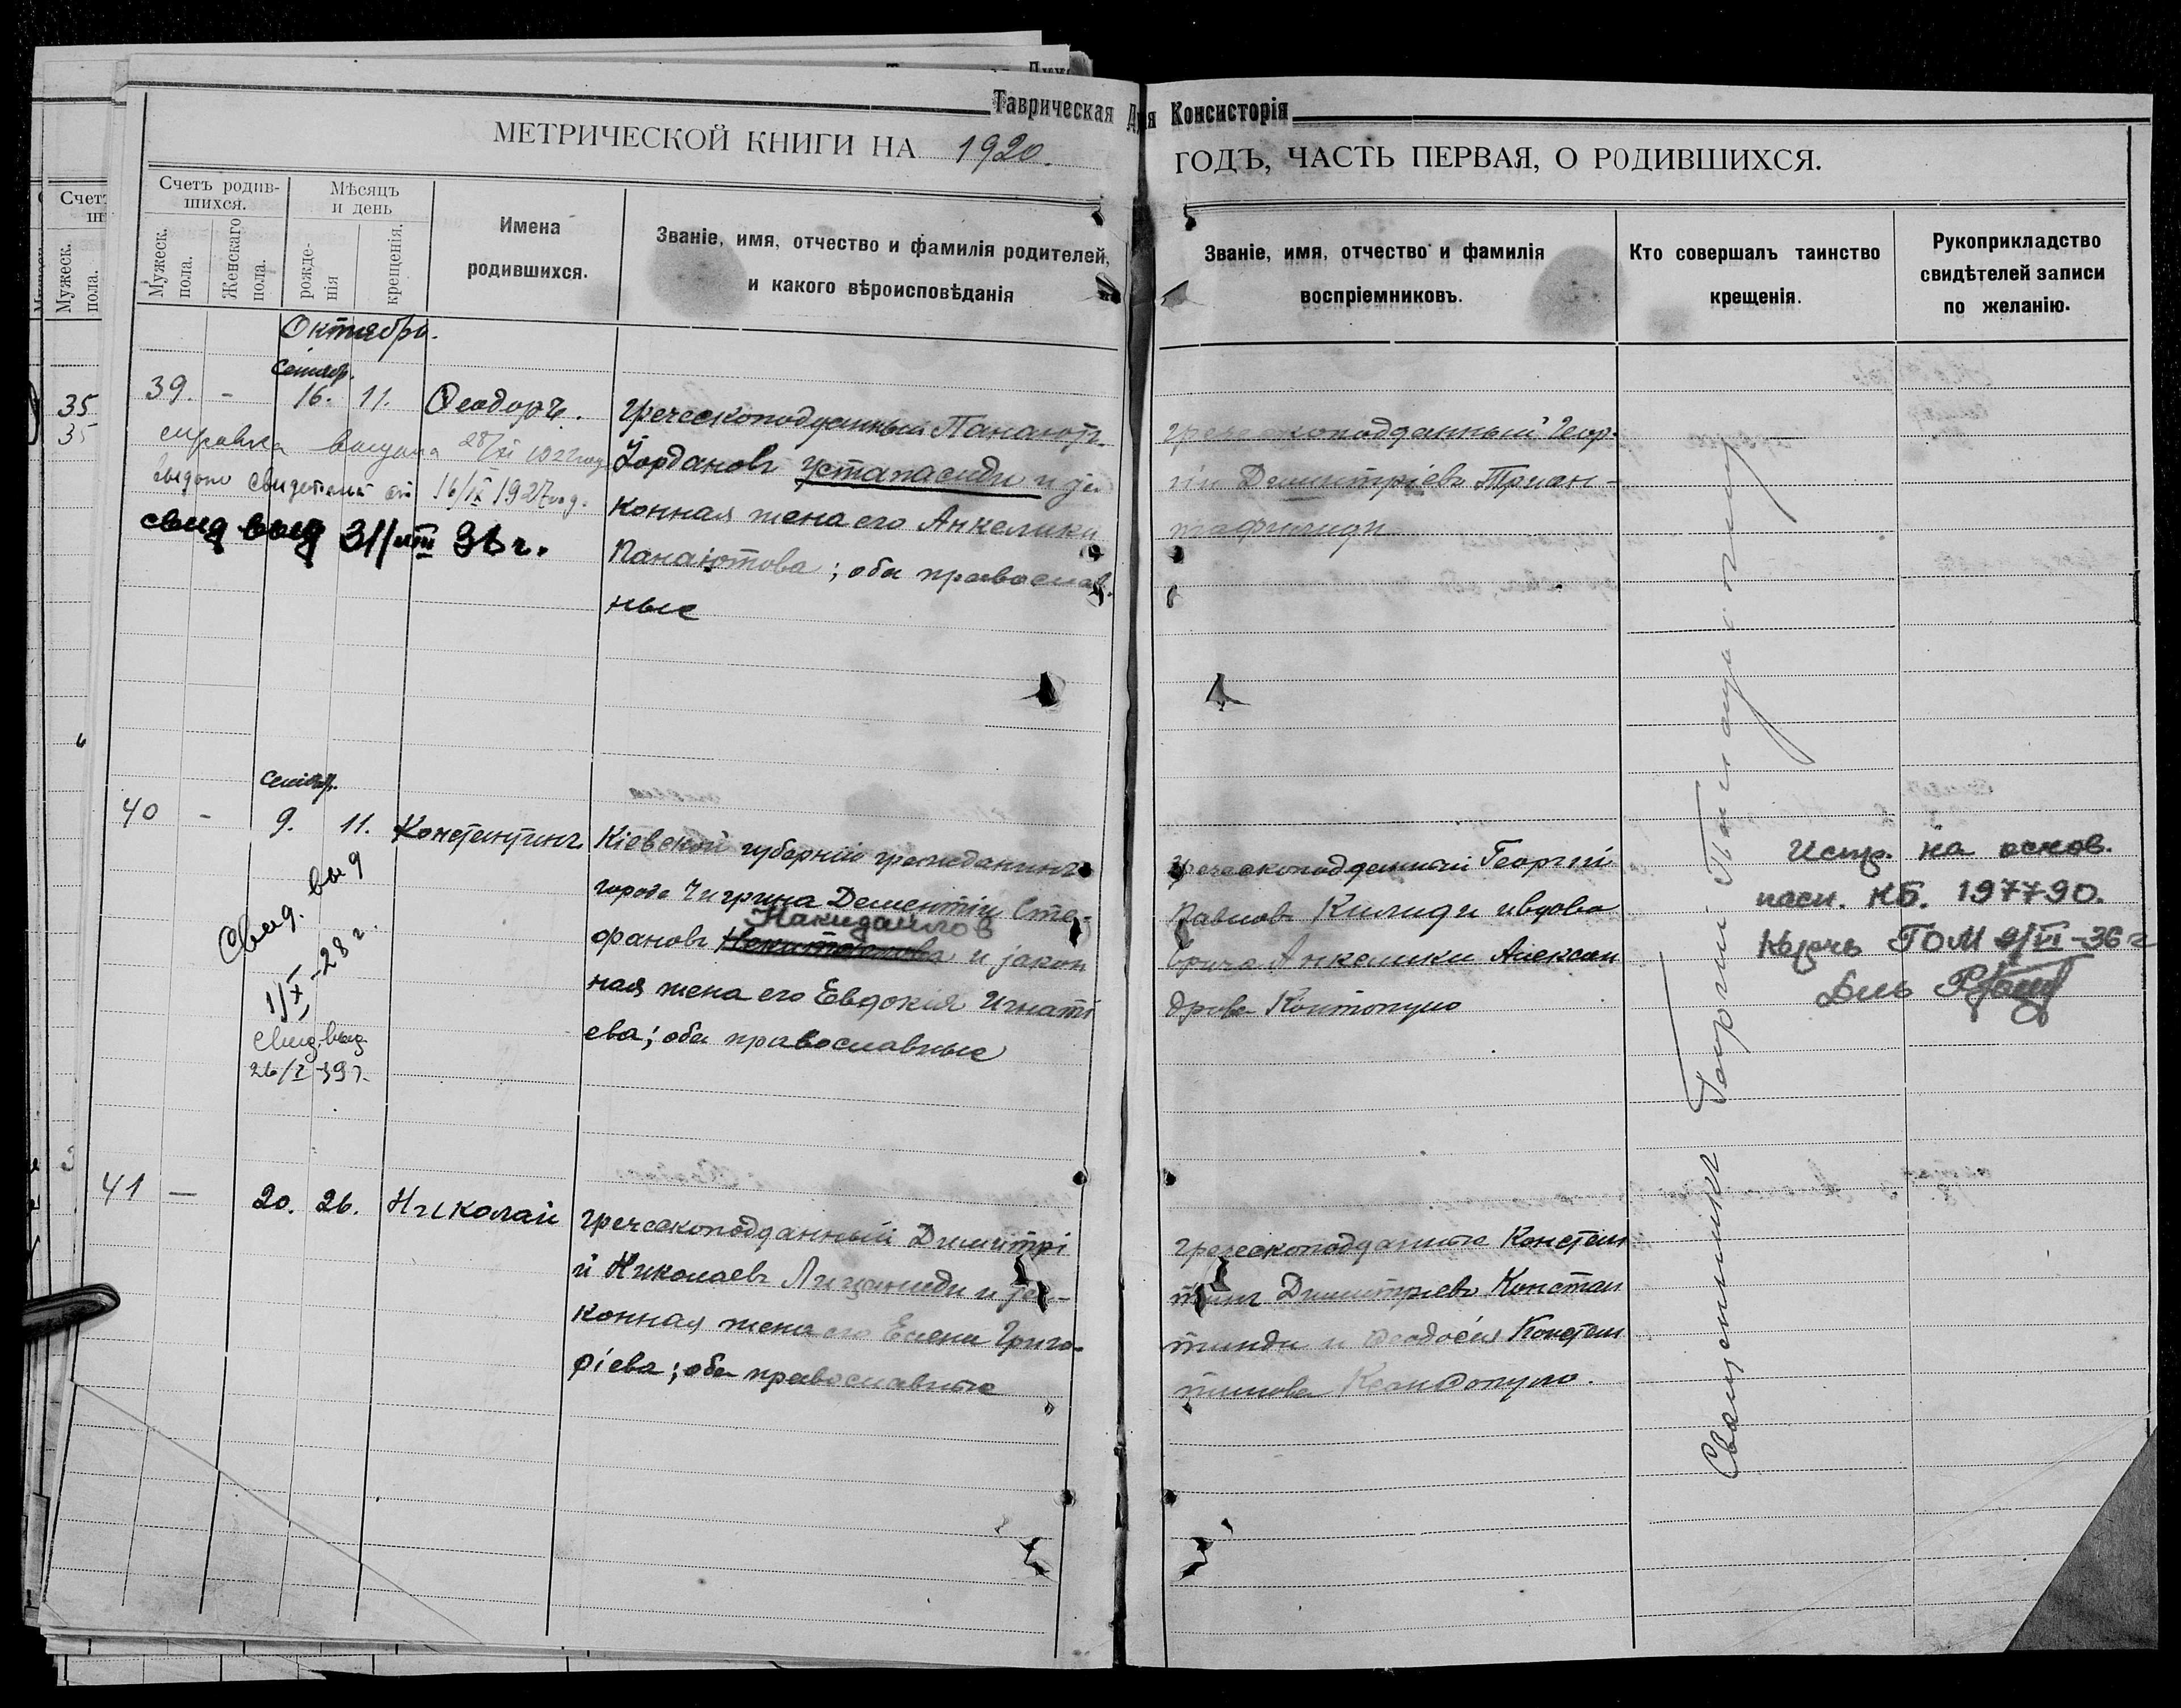 Таврическая Д
я Консисторія
МЕТРИЧЕСКОЙ КНИГИ НА 1920.
ГОДЪ, ЧАСТЬ ПЕРВАЯ, О РОДИВШИХСЯ.
Счетъ родив-
шихся.
Мужеск. пола.
Женскаго пола.
Мѣсяцъ
и день
рожде-
нія
крещенія.
Имена
родившихся.
Званіе, имя, отчество и фамилія родителей,
и какого вѣроисповѣданія
Званіе, имя, отчество и фамилія
воспріемниковъ.
Кто совершалъ таинство
крещенія.
Рукоприкладство
свидѣтелей записи
по желанію.
Счет
Мужеск.
пола.
35
35
Октября.
Сентяб.
39. - 16. 11. Ѳеодоръ.
справка выдана 28/
выдано свидетельст от 16/IX 1927 год.
свид выд 31/VIII 36 г.
Греческоподданный Панаіотъ
Іордановъ Устапасиди и за
конная жена его Анкелики
Панаіотова; оба православ
ные
греческоподданный Геор-
гій Димитріевъ Триан-
тафилиди
Сентяб.
40 - 9. 11. Константинъ
Свид. выд
1/X-28 г.
Свид. выд
26/I-39 г.
Кіевской губерніи гражданинъ
города Чигрина Дементій Сте-
Накидайлов
фановъ и закон
ная жена его Евдокія Игнаті
ева; оба православные
греческоподданный Георгій
Павловъ Килиди и вдова
врача Анкелики Алексан
дрова Контопуло
Испр. на основ.
пасп. КБ. 197790.
Керчь ГОМ 9/VI-36 г
41 — 20. 26. Николай
греческоподданный Димитрі
й Николаевъ Лицаниди и за-
конная жена его Елена Григо-
ріева; оба православные
греческоподданные Констан
тинъ Димитріевъ Констан
тиниди и Ѳеодосія Констан
тинова Ксандопуло.
Священникъ Георгій